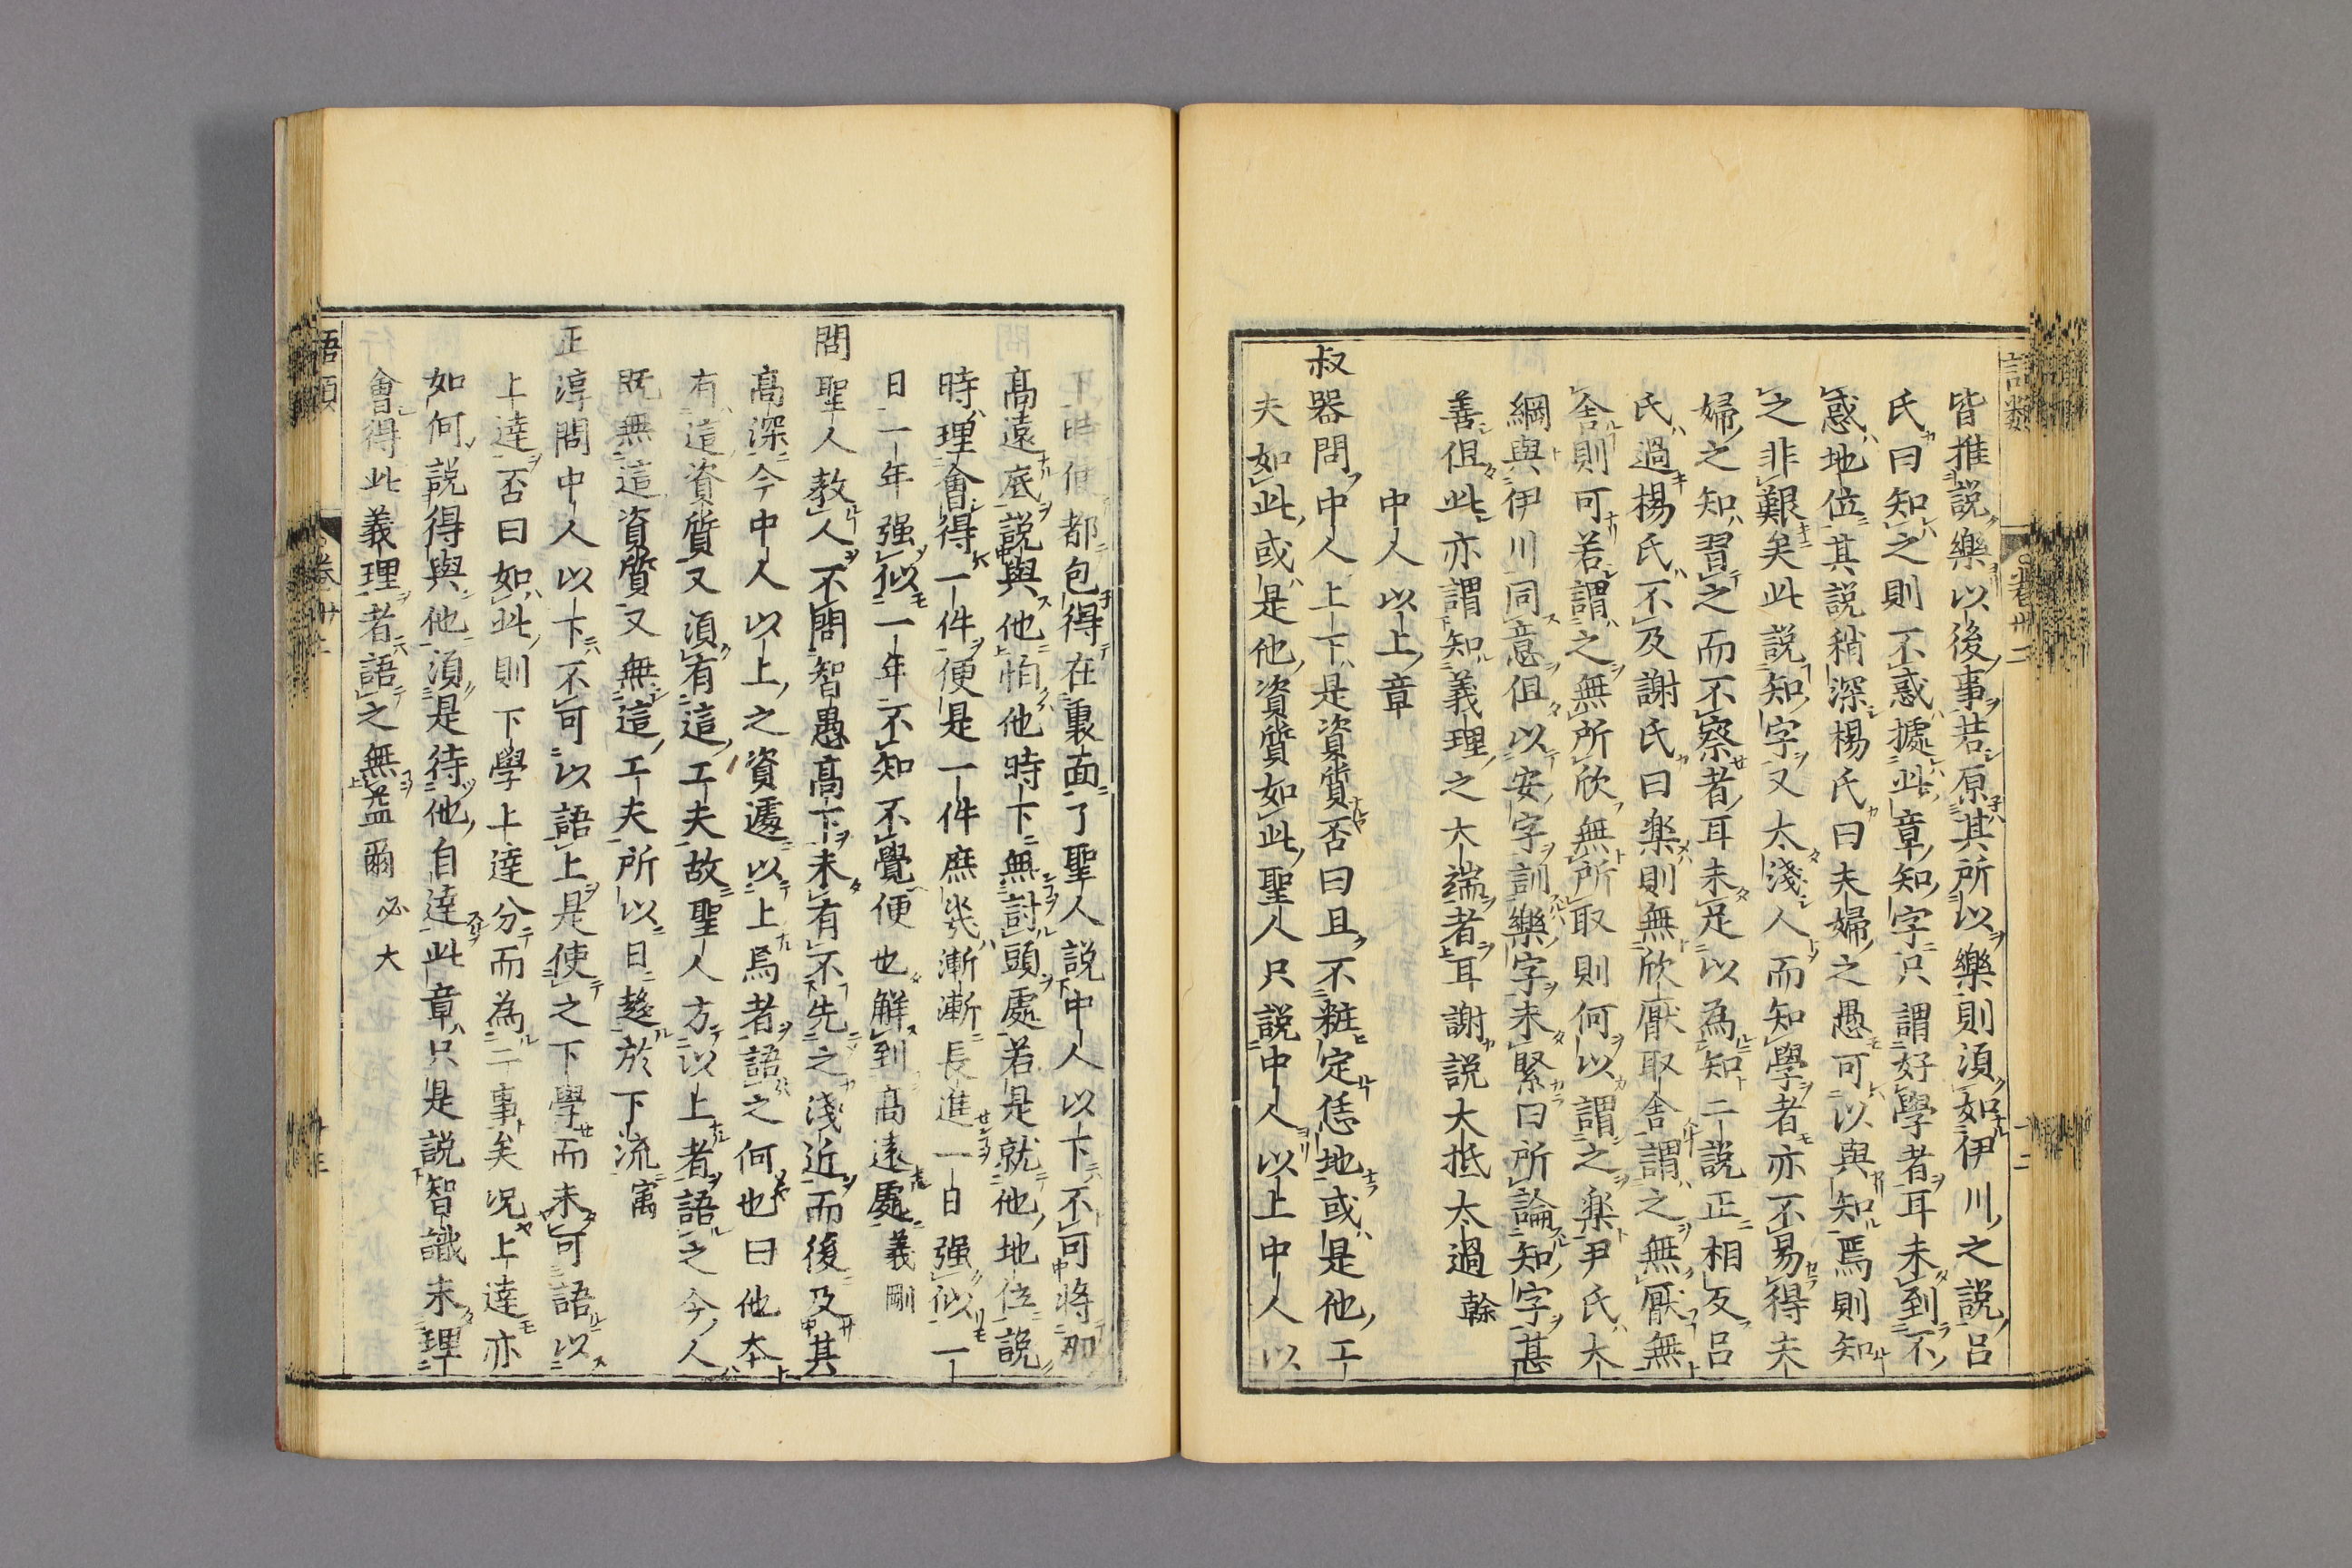 語類
卷卅二
十二
皆推説樂以後事若原其所以樂則須如伊川之説呂
氏曰知之則不惑據此章知字只謂好學者耳未到不
惑地位其説稍深楊氏曰夫婦之愚可以與知焉則知
之非艱矣此説知字又太淺人而知學者亦不易得夫
婦之知習之而不察者耳未足以為知二説正相反呂
氏過楊氏不及謝氏曰楽則無欣厭取舍謂之無厭無
舍則可若謂之無所欣無所取則何以謂之楽尹氏大
綱與伊川同意但以安字訓樂字未緊曰所論知字甚
善但此亦謂知義理之大端者耳謝説大抵太過 榦
中人以上章
叔器問中人上下是資質否曰且不粧定恁地或是他工
夫如此或是他資質如此聖人只説中人以上中人以
下時便都包得在裏面了聖人説中人以下不可將那
高遠底説與他怕他時下無討頭處若是就他地位説
時理會得一件便是一件庶幾漸漸長進一日强似一
日一年强似一年不知不覺便也解到高遠處 義剛
問聖人教人不問智愚高下未有不先之淺近而後及其
高深今中人以上之資遽以上焉者語之何也曰他本
有這資質又須有這工夫故聖人方以上者語之今人
既無這資質又無這工夫所以日趍於下流 㝢
正淳問中人以下不可以語上是使之下學而未可語以
上達否曰如此則下學上達分而為二事矣况上達亦
如何説得與他須是待他自達此章只是説智識未理
會得此義理者語之無益爾 必大
語類
卷卅二
十三